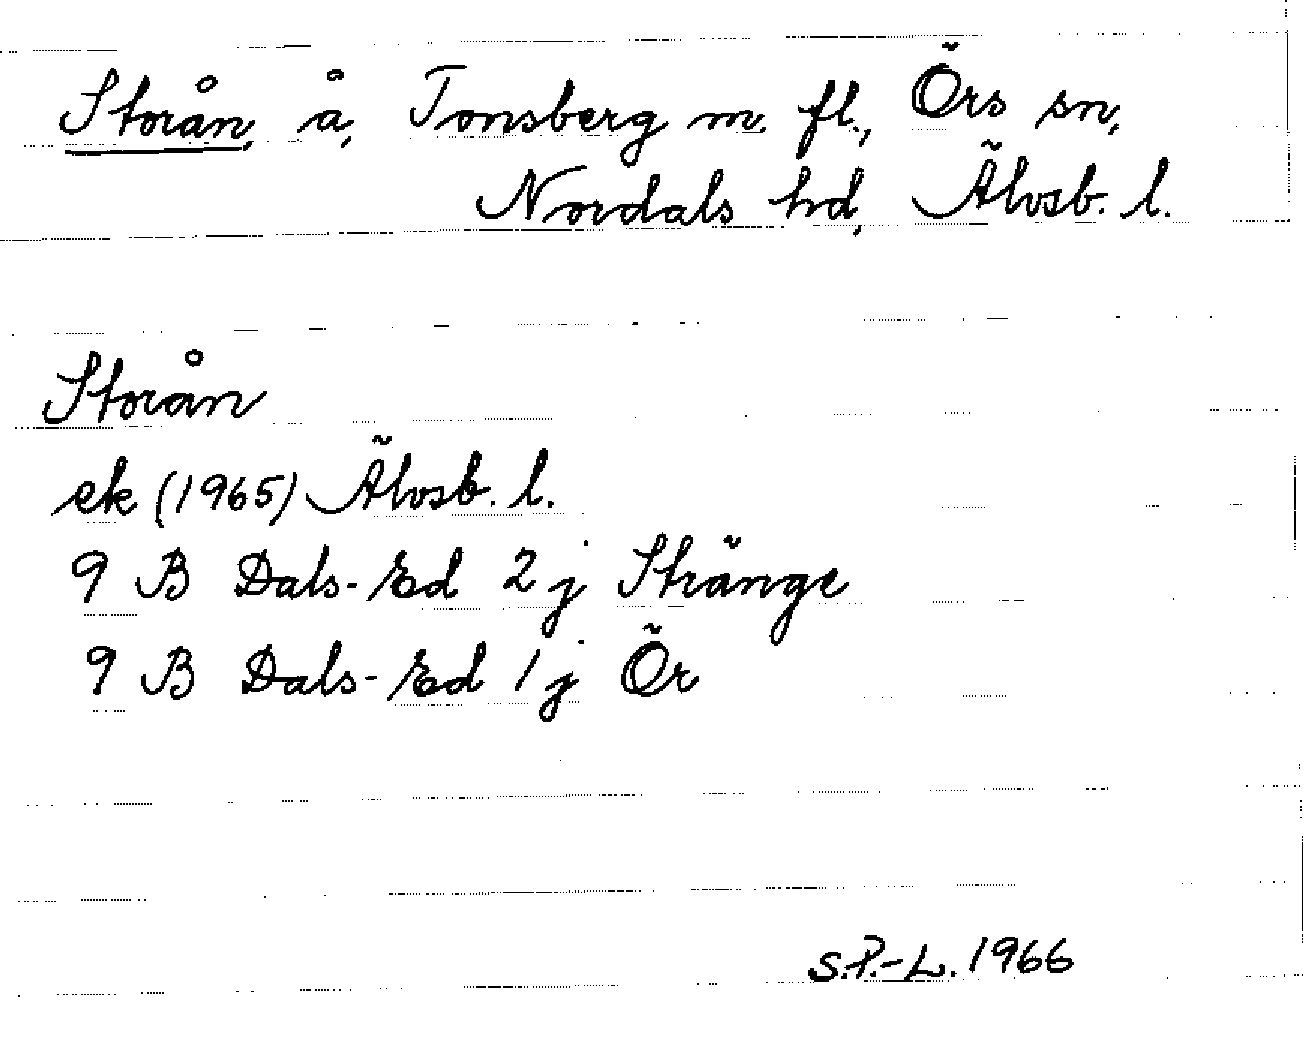 Storån, å, Tonsberg m. fl., Örs sn,
Nordals hd, Älvsb. l.
Storån
ek (1965) Älvsb. l.
9 B Dals-Ed 2 j Stränge
9 B Dals-Ed 1 j Ör
S.P.-L. 1966